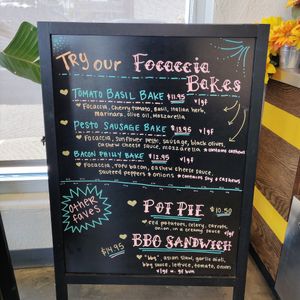 TRY our Focaccia
Bakes
TOMATO BASIL BAKE $11.95 v/gf
Focaccia, cherry tomato, basil, italian herb,
marinara, olive oil, mozzarella
PESTO SAUSAGE BAKE $13.95 v/gf
Focaccia, sunflower pesto, sausage, black olives,
cashew cheese sauce, mozzarella * contains cashews
BACON PHILLY BAKE $12.95 v/gf
Focaccia, tofu bacon, cashew cheese sauce,
sauteed peppers & onions * contains soy & cashews
other
faves
POT PIE $10.50
red potatoes, celery, carrots,
onion, in a creamy sauce v/gf
$14.95 BBQ SANDWICH
"bbq", asian slaw, garlic aioli,
bbq sauce, lettuce, tomato, onion
v/gf w. gf bun